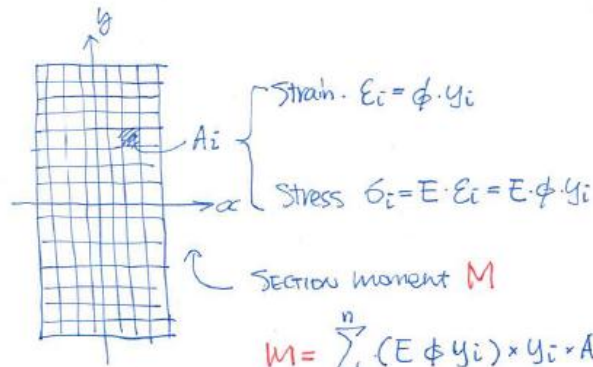 y
Strain. εi = φ·yi
Ai
x
Stress σi = E·εi = E·φ·yi
SECTION moment M
n
M = Σ (E φ yi) × yi × A